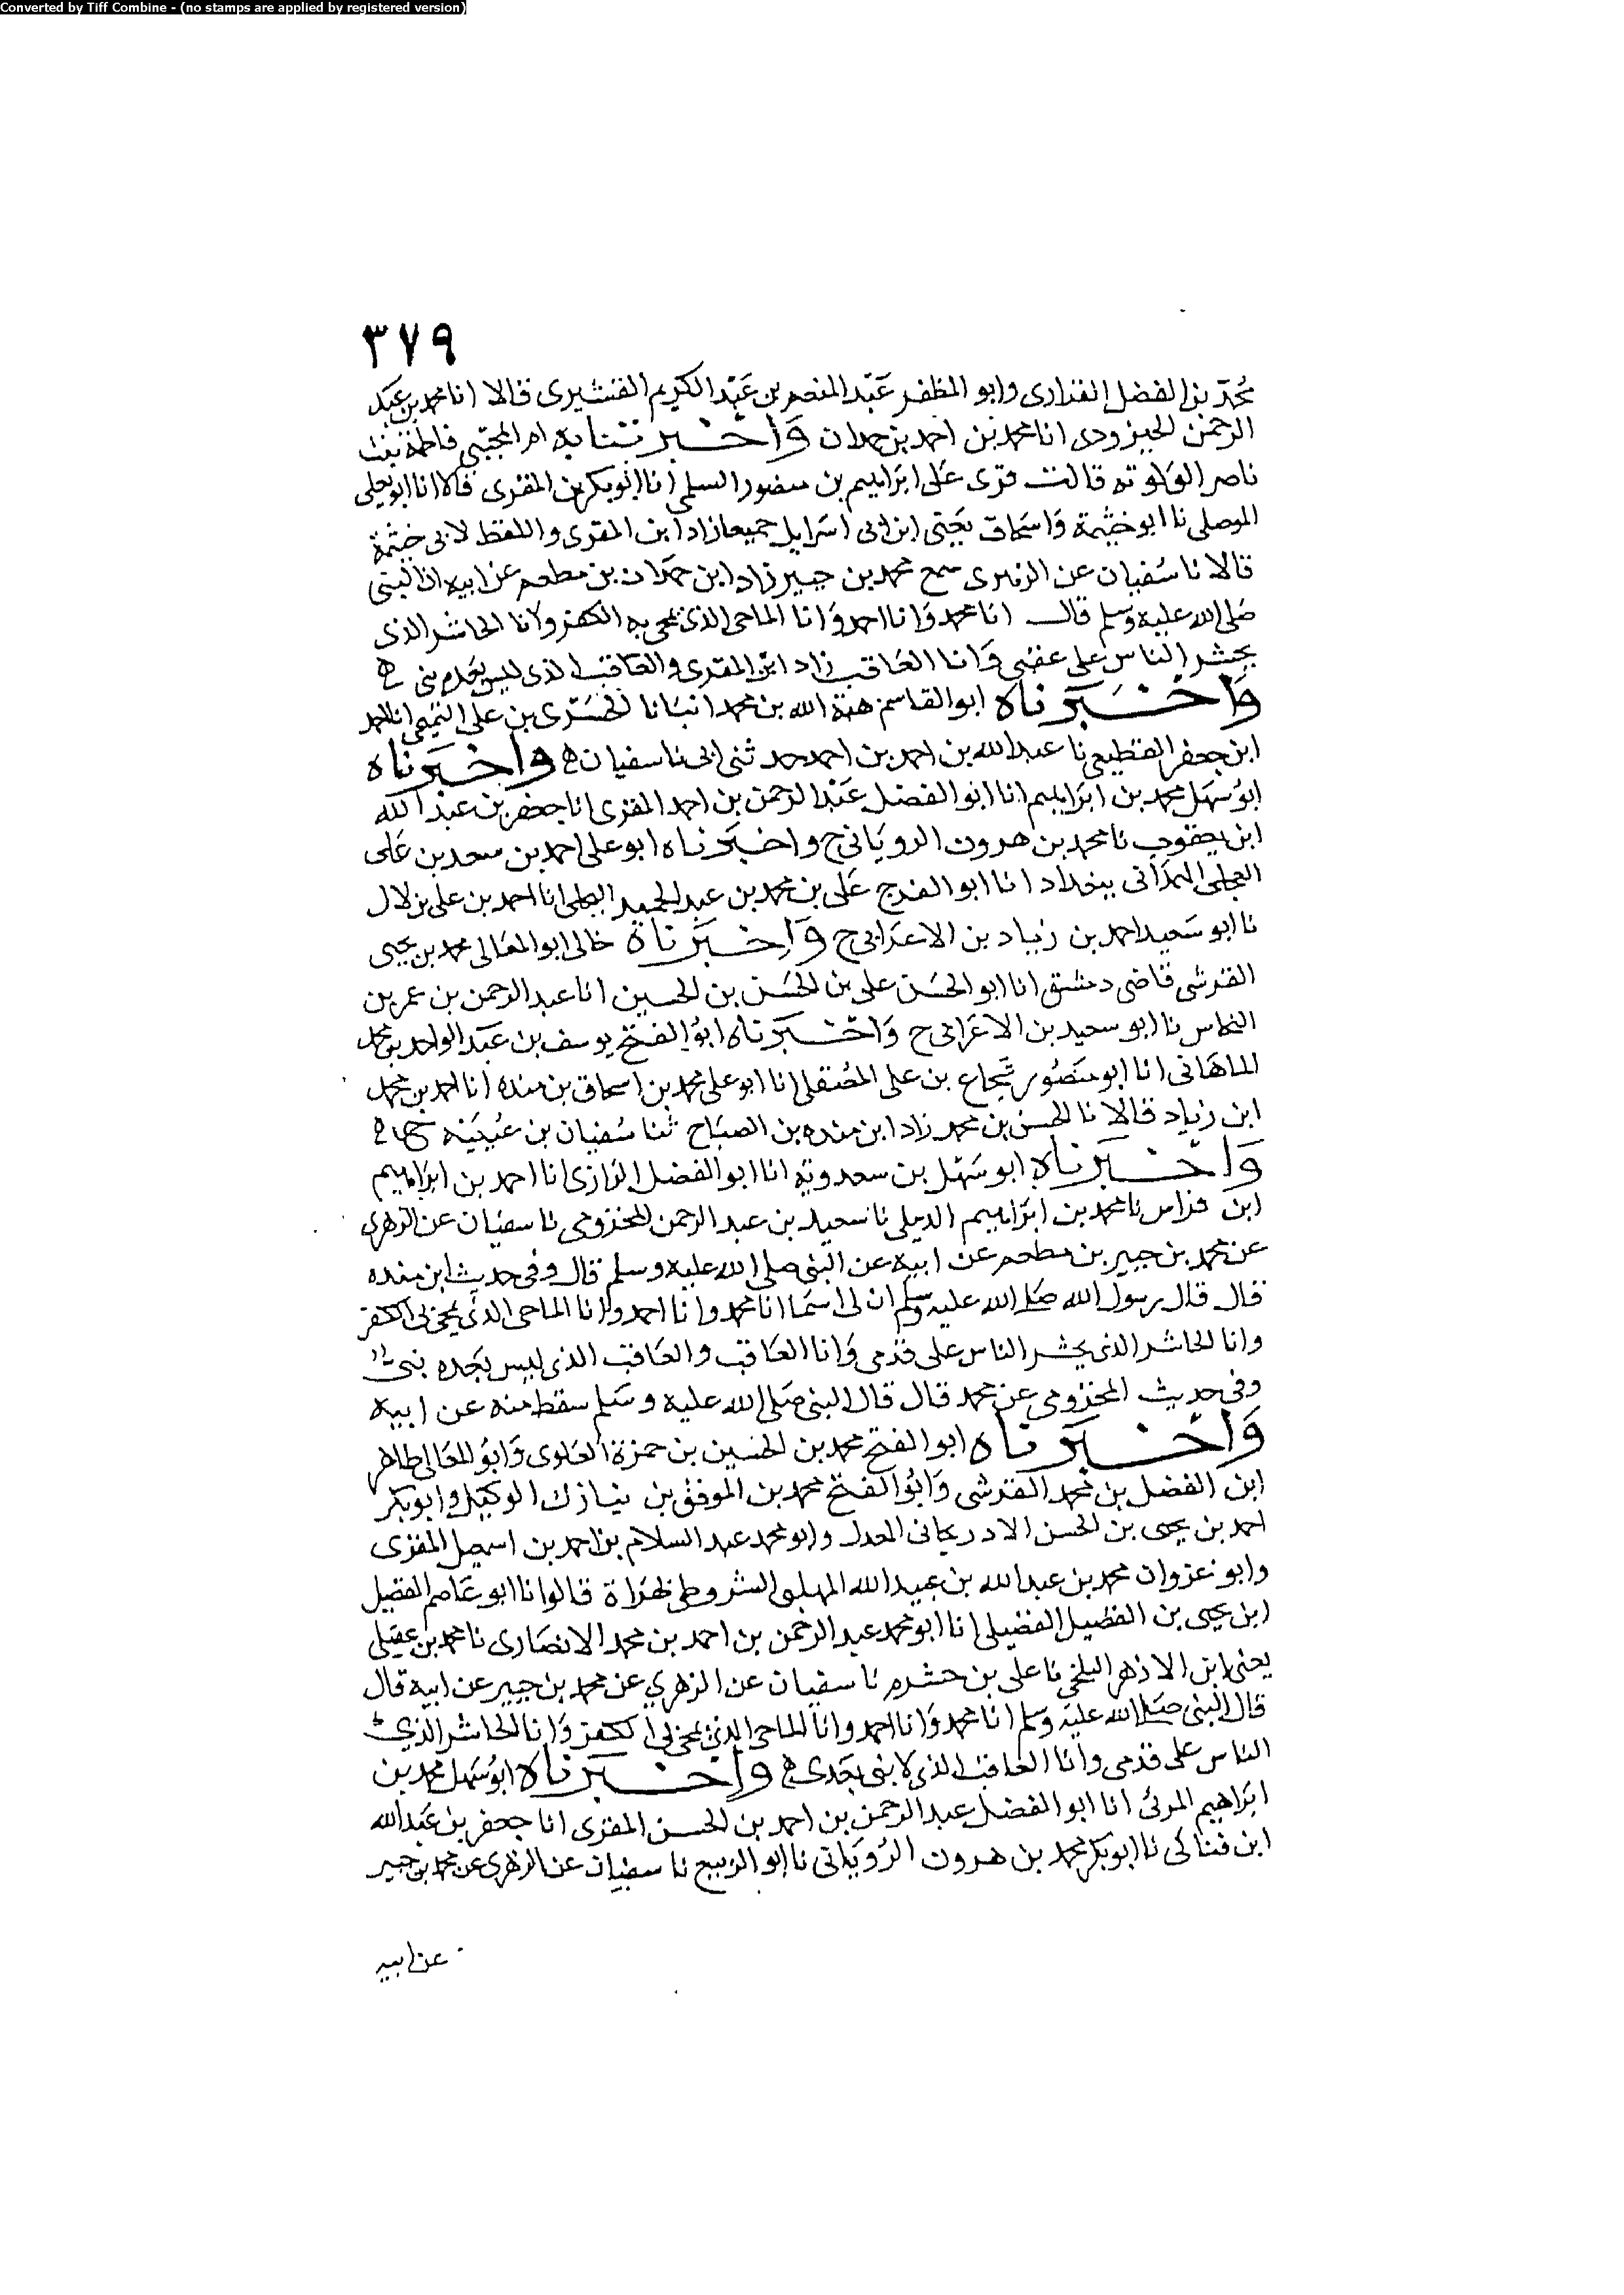 Converted by Tiff Combine - (no stamps are applied by registered version)
٣٧٩
محمد بن الفضل الفزارى وابو المظفر عَبْد المنعم بن عَبْد الكريم القشيرى قالا انا محمد بن عبد
الرحمن الجيزودى انا محمد بن احمد بن حمدان وَاخْبرتنا به ام المجتبى فاطمة بنت
ناصر العَلوته قالت قرى عَلى ابراهيم بن منصور السلمى انا ابو بكر بن المقرى قالا انا ابو يعلى
الموصلى نا ابو خيثمة وَاسحاق يَعنى ابن ابى اسرايل جميعا زاد ابن المقرى واللفظ لابى خيثمة
قالا نا سُفيان عن الزهرى سمع محمد بن جبير زاد ابن حمدان بن مطعم عن ابيه ان النبى
صَلى الله عليه وسلم قال انا محمد وَانا احمد وَانا الماحى الذى يمحى به الكفر وانا الحاشر الذى
يحشر الناس على عقبى وَانا العَاقب زاد ابن المقرى والعَاقب الذى ليس بعده نبى ه
وَاخْبَرَناه ابو القاسم هبة الله بن محمد انبَانا الحسَن بن على التميمى انا احمد
ابن جعفر القطيعى نا عبد الله بن احمد بن احمد حد ثنى ابى نا سفيان ه واخبَرناه
ابوُ سهَل محمد بن ابرَاهيم انا ابو الفضل عَبْد الرحمن بن احمد المقرى انا جعفر بن عبد الله
ابن يعقوب نا محمد بن هرون الرويَانى ح واخبَرناه ابو على احمد بن سعد بن عَلى
العجلى الهمذانى ببغداد انا ابو الفرج عَلى بن محمد بن عبد الحميد البجلى انا احمد بن على بن لال
نا ابو سَعيد احمد بن زياد بن الاعرَابى ح وَاخبَرناه خالى ابو المعَالى محمد بن يحيى
القرشى قاضى دمشق انا ابو الحسَن على بن الحسَن بن الحسين انا عبد الرحمن بن عمر بن
النحاس نا ابو سعيد بن الاعرَابى ح وَاخْبَرناه ابوُ الفتح يوسف بن عَبد الواحد بن محمد
الماهَانى انا ابو منصُور شجاع بن على المصْقلى انا ابو على محمد بن اسحاق بن منده انا احمد بن محمد
ابن زياد قالا نا الحسن بن محمد زاد ابن منده بن الصبَاح ثنا سُفيان بن عُيينه ح ه
وَاخْبَرناه ابو سَهْل بن سعدويَه انا ابو الفضل الرَازى انا احمد بن ابرَاهيم
ابن فراس نا محمد بن ابرَاهيم الديلى نا سَعيد بن عبد الرحمن المخزومى نا سفيان عن الزهرى
عن محمد بن جبير بن مطعم عن ابيه عن النبى صلى الله عليه وسلم قال وفى حديث ابن منده
قال قال رسول الله صَلى الله عليه وسلم ان لى اسمَا انا محمد وانا احمد وانا الماحى الذى يمحى بى الكفر
وانا الحاشر الذى يحشر الناس على قدَمى وَانا العَاقب والعَاقب الذى ليس بَعده نبى
وفى حديث المخزومى عن محمد قال قال النبى صَلى الله عليه وسَلم سقط منه عن ابيه
وَاخْبَرَناه ابو الفتح محمد بن الحسَين بن حمزة العَلوى وَابوُ المعَالى طاهر
ابن الفضل بن محمد القرشى وَابوُ الفتح محمد بن الموفق بن نيازك الوكيَل وابو بكر
احمد بن يحيى بن الحسن الادربجانى المعدل وابو محمد عبد السلام بن احمد بن اسمعيل المقرى
وابو غزوان محمد بن عبد الله بن عبيد الله المهلبى الشروطى بهَراة قالوا انا ابو عَاصم الفضيل
ابن يحيى بن الفضَيل الفضيلى انا ابو محمد عبد الرحمن بن احمد بن محمد الانصَارى نا محمد بن عقيل
يعنى ابن الازهر البلخى نا على بن خشرم نا سفيان عن الزهري عن محمد بن جبير عن ابيه قال
قال النبى صَلى الله عليه وسلم انا محمد وَانا احمد وانا الماحى الذى يمحى بى الكفر وَانا الحاشر الذى
الناس على قدَمى وانا العَاقب الذى لا نبى بَعدى ه واخبَرناه ابوُ سَهل محمد بن
ابرَاهيم المرنى انا ابو الفضل عبد الرحمن بن احمد بن الحسن المقرى انا جعفر بن عَبد الله
ابن فناكى نا ابو بكر محمد بن هرون الرُويَانى نا ابو الربيع نا سفيان عن الزهرى عن محمد بن جبير
عن ابيه